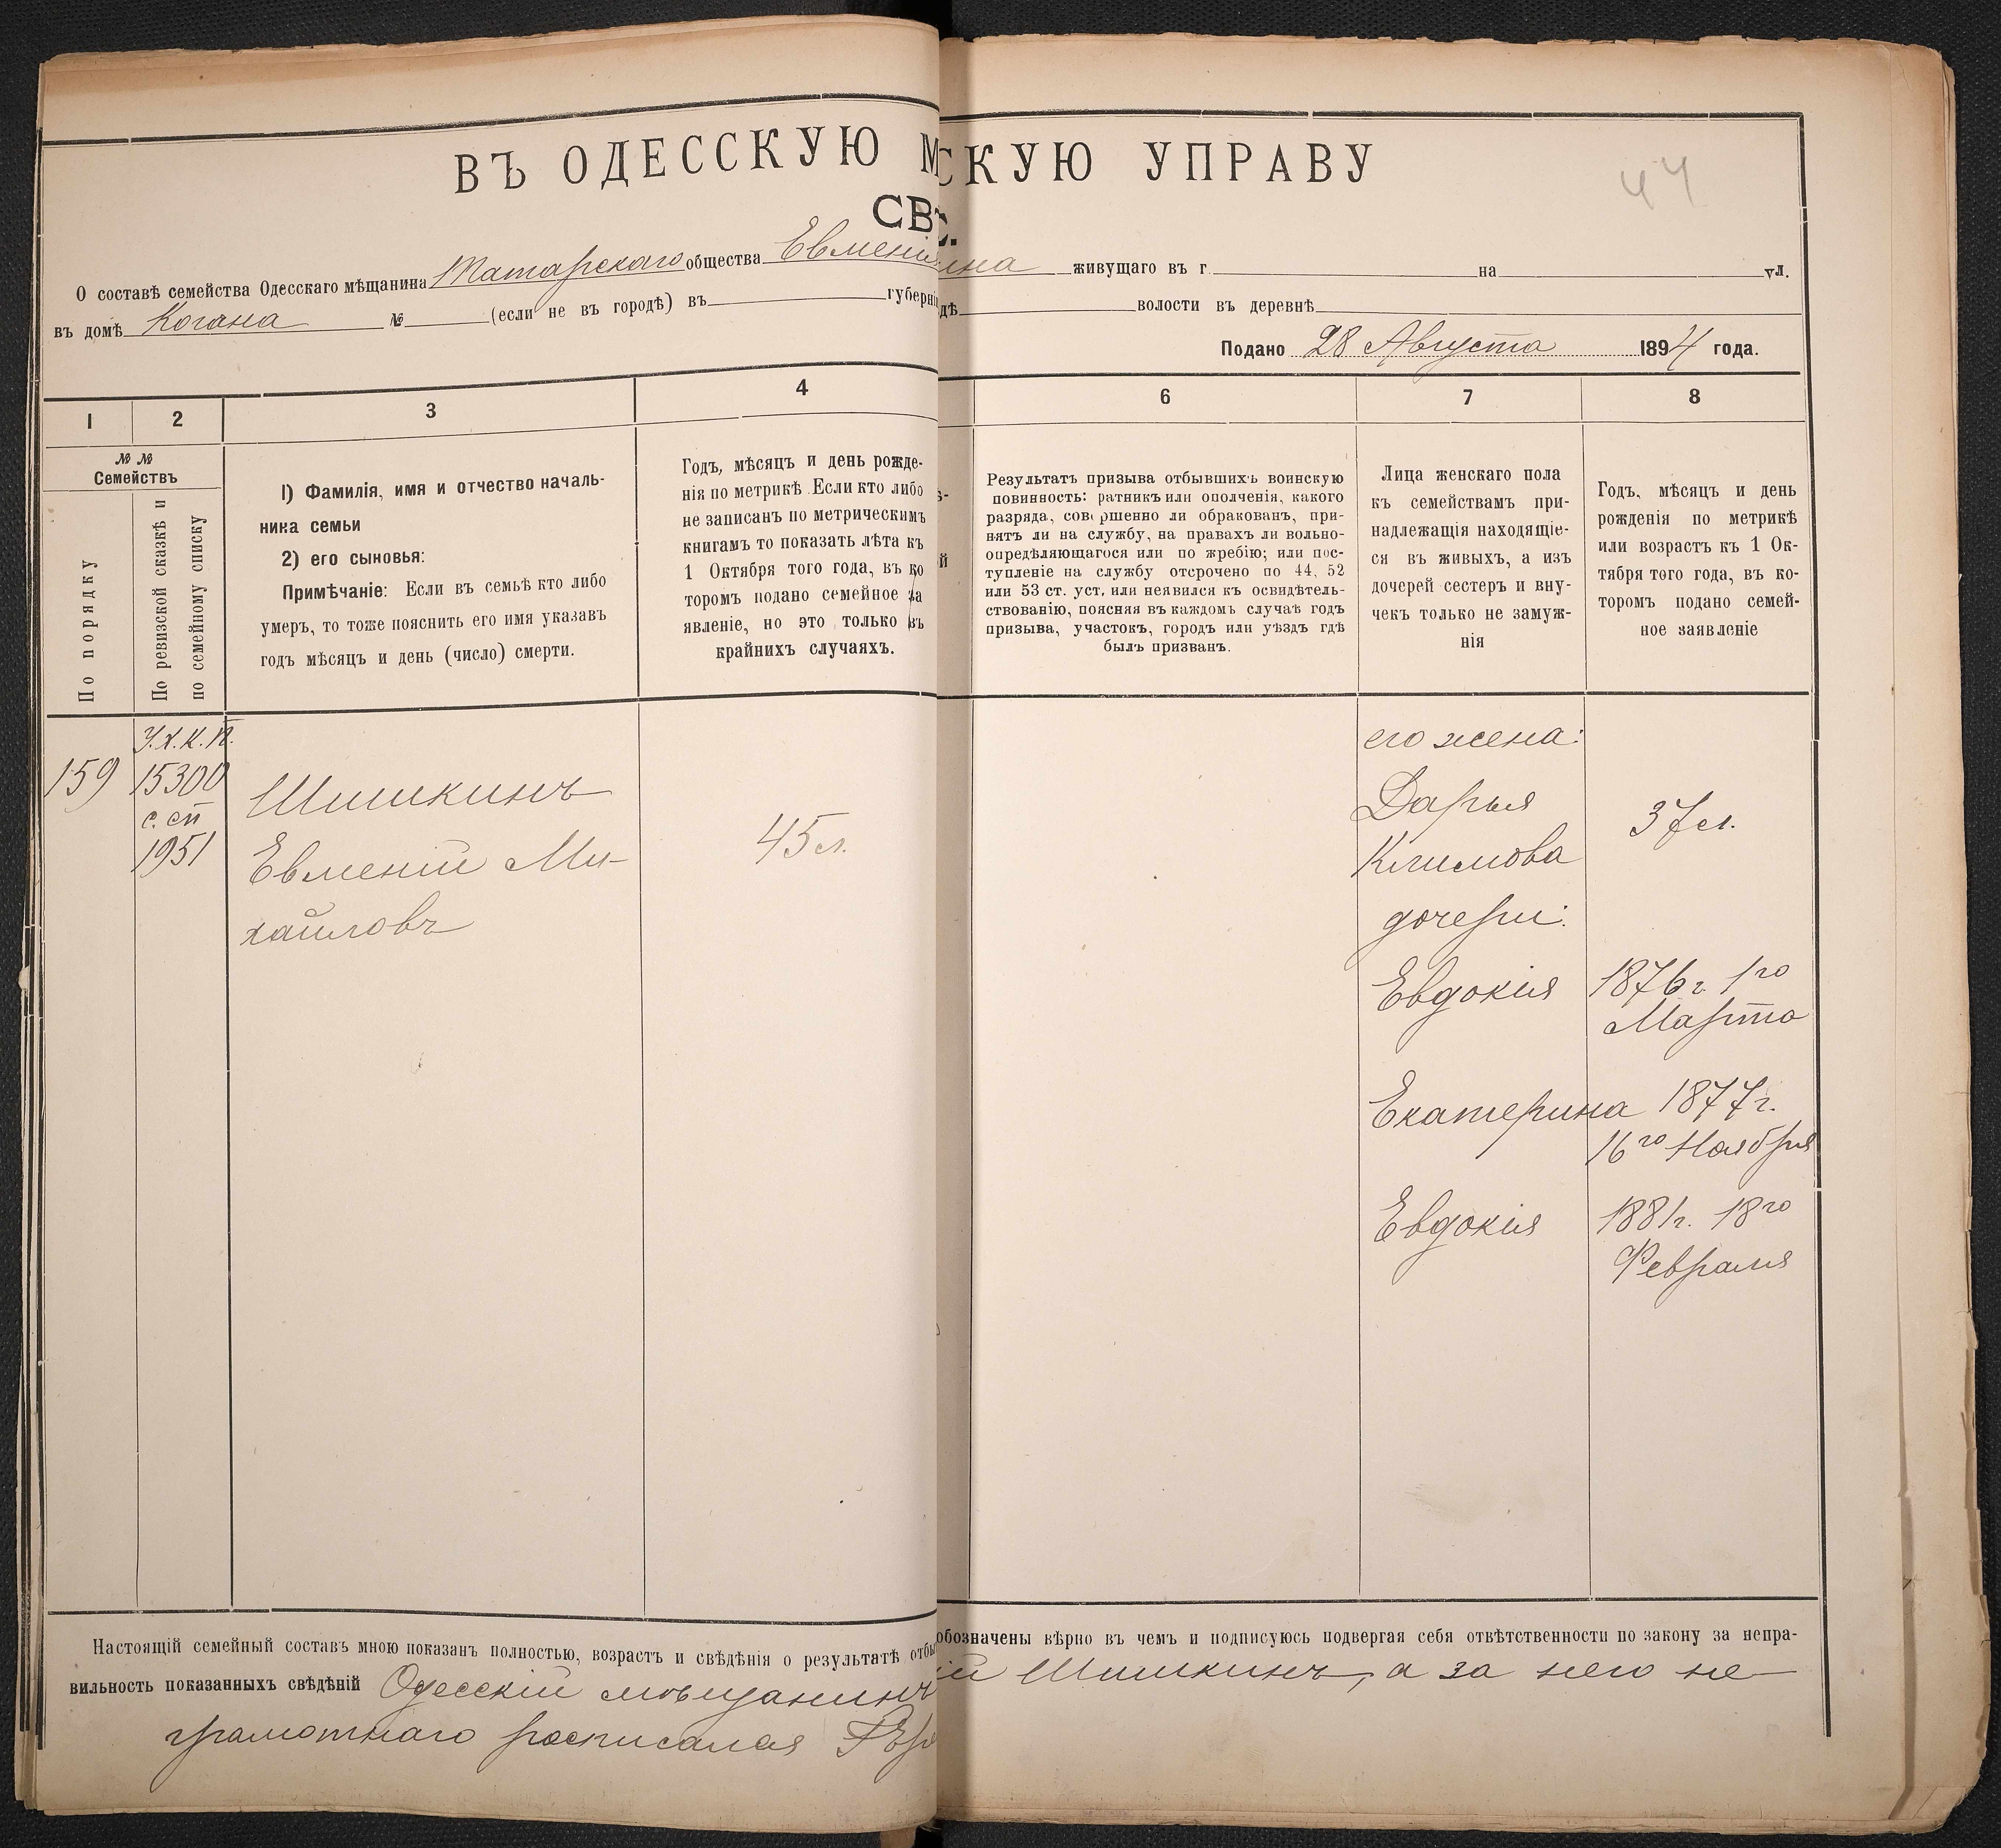 ВЪ ОДЕССКУЮ М СКУЮ УПРАВУ
44
СВ
О составѣ семейства Одесскаго мѣщанина Татарскаго общества Евмені ина живущаго въ г. на ул.
въ домѣ Когана № (если не въ городѣ) въ губерні дѣ волости въ деревнѣ
Подано 28 Августа 1894 года.
1 2 3 4 6 7 8
№ №
Семействъ
По порядку
По ревизской сказкѣ и
по семейному списку
1) Фамилія, имя и отчество началь-
ника семьи
2) его сыновья:
Примѣчаніе: Если въ семьѣ кто либо
умеръ, то тоже пояснить его имя указавъ
годъ мѣсяцъ и день (число) смерти.
Годъ, мѣсяцъ и день рожде-
нія по метрикѣ. Если кто либо
не записанъ по метрическимъ
книгамъ то показать лѣта къ
1 Октября того года, въ ко
торомъ подано семейное за
явленіе, но это только въ
крайнихъ случаяхъ.
Результатъ призыва отбывшихъ воинскую
повинность: ратникъ или ополченія, какого
разряда, совершенно ли обракованъ, при-
нятъ ли на службу, на правахъ ли вольно-
опредѣляющагося или по жребію; или пос-
тупленіе на службу отсрочено по 44, 52
или 53 ст. уст. или неявился къ освидѣтель-
ствованію, поясняя въ каждомъ случаѣ годъ
призыва, участокъ, городъ или уѣздъ гдѣ
былъ призванъ.
Лица женскаго пола
къ семействамъ при-
надлежащія находящіе-
ся въ живыхъ, а изъ
дочерей сестеръ и вну-
чекъ только не замуж-
нія
Годъ, мѣсяцъ и день
рожденія по метрикѣ
или возрастъ къ 1 Ок-
тября того года, въ ко-
торомъ подано семей-
ное заявленіе
159
15300
с. сп
1951
Шишкинъ
Евменій Ми-
хайловъ
45 л.
его жена:
Дарья
Климова
37 л.
дочери:
Евдокія 1876 г. 1го
Марта
Екатерина 1877 г.
16го Ноября
Евдокія 1881 г. 18го
Февраля
Настоящій семейный составъ мною показанъ полностью, возрастъ и свѣдѣнія о результатѣ отбы обозначены вѣрно въ чемъ и подписуюсь подвергая себя отвѣтственности по закону за непра-
вильность показанныхъ свѣдѣній Одесскій мѣщанинъ ій Шишкинъ, а за него не-
грамотнаго росписался